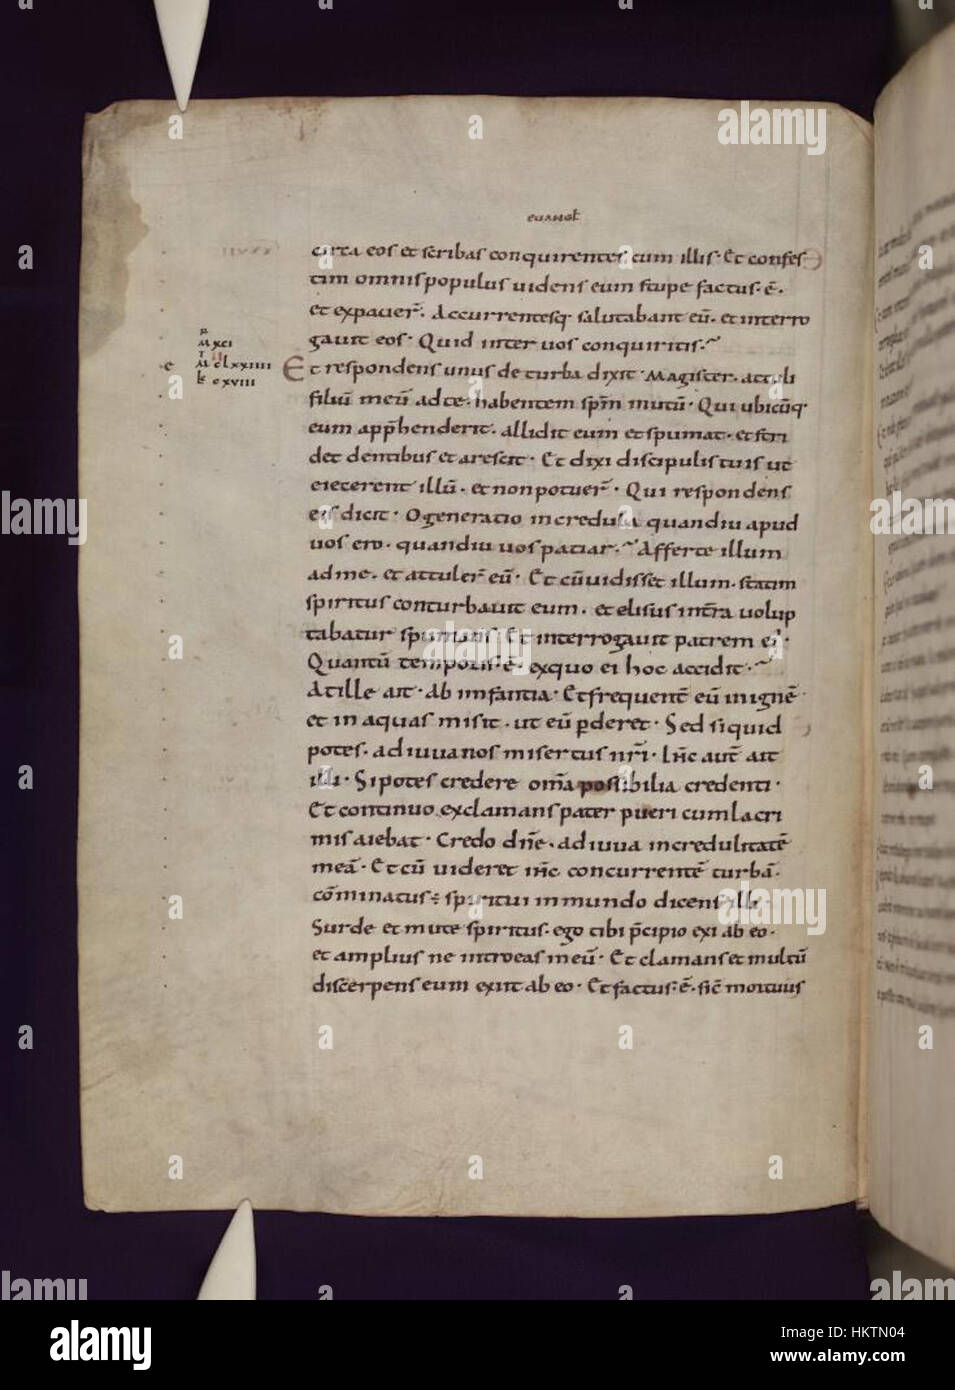 EUANGL
circa eos et scribas conquirentes cum illis· Et confes
tim omnis populus uidens eum stupefactus· ē·
et expauer̄· Accurrentesq· salutabant eū· et interro
gauit eos· Quid inter uos conquiritis·
M XCI
e
M CLXXIIII
L CXVIII
Et respondens unus de turba dixit· Magister· attuli
filiū meū ad te· habentem sp̄m mutū· Qui ubicūq·
eum app̄henderit· allidit eum et spumat· et stri
det dentibus et arescit· Et dixi discipulis tuis ut
eicerent illū· et non potuer̄· Qui respondens
eis dicit· O generatio incredula quandiu apud
uos ero· quandiu uos patiar· Afferte illum
ad me· et attuler̄ eū· Et cū uidisset illum· statim
spiritus conturbauit eum· et elisus in t̄ra uolup
tabatur spumans· Et interrogauit patrem ei'·
Quantū temporis· ē· ex quo ei hoc accidit·
At ille ait· Ab infantia· Et frequent̄ eū in ignē
et in aquas misit· ut eū p̱deret· Sed si quid
potes· adiuua nos misertus nr̄i· Ih̄c aut̄ ait
illi· Si potes credere om̄a possibilia credenti·
Et continuo exclamans pater pueri cum lacri
mis aiebat· Credo dn̄e· adiuua incredulitatē
meā· Et cū uideret ih̄c concurrentē turbā·
cōminatus ÷ spiritui inmundo dicens illi·
Surde et mute spiritus· ego tibi p̄cipio exi ab eo·
et amplius ne introeas in eū· Et clamans et multū
discerpens eum exiit ab eo· Et factus· ē· sic̄ mortuus
alamy
alamy
Image ID: HKTN04
www.alamy.com